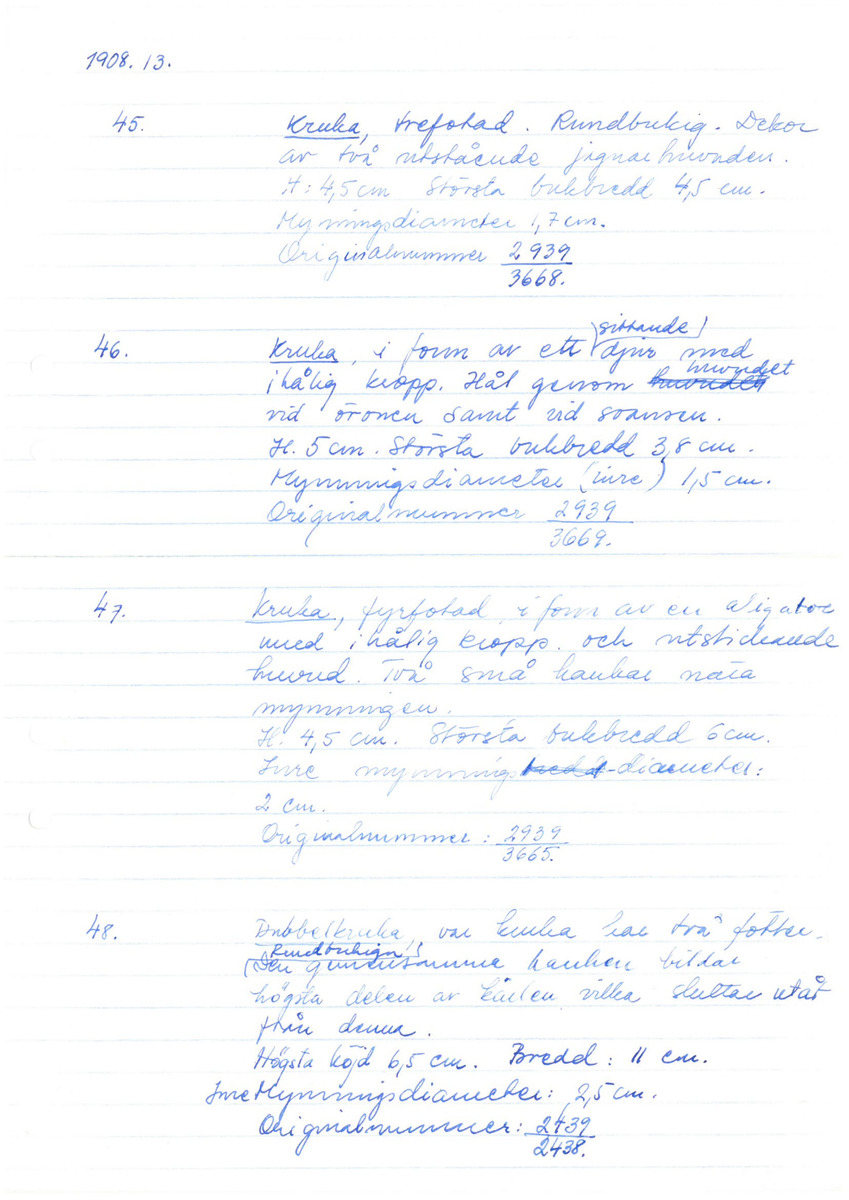 1908.13.
45. Kruka, trefotad. Rundbukig. Dekor
av två utstående jaguarhuvuden.
H: 4,5 cm Största bukbredd 4,5 cm.
Mynningsdiameter 1,7 cm.
Originalnummer 2939
3668.
46. Kruka, i form av ett (sittande) djur med
ihålig kropp. Hål genom huvudet
vid öronen samt vid svansen.
H. 5 cm. Största bukbredd 3,8 cm.
Mynningsdiameter (inre) 1,5 cm.
Originalnummer 2939
3669.
47. Kruka, fyrfotad, i form av en aligator
med ihålig kropp. och utstickande
huvud. Två små hankar nära
mynningen.
H. 4,5 cm. Största bukbredd 6 cm.
Inre mynnings-diameter:
2 cm.
Originalnummer: 2939
3665.
48. Dubbelkruka, var kruka har två fötter.
(Rundbukiga) Den gemensamma hanken bildar
högsta delen av kärlen vilka sluttar utåt
från denna.
Högsta höjd 6,5 cm. Bredd: 11 cm.
Inre Mynningsdiameter: 2,5 cm.
Originalnummer: 2439
2438.